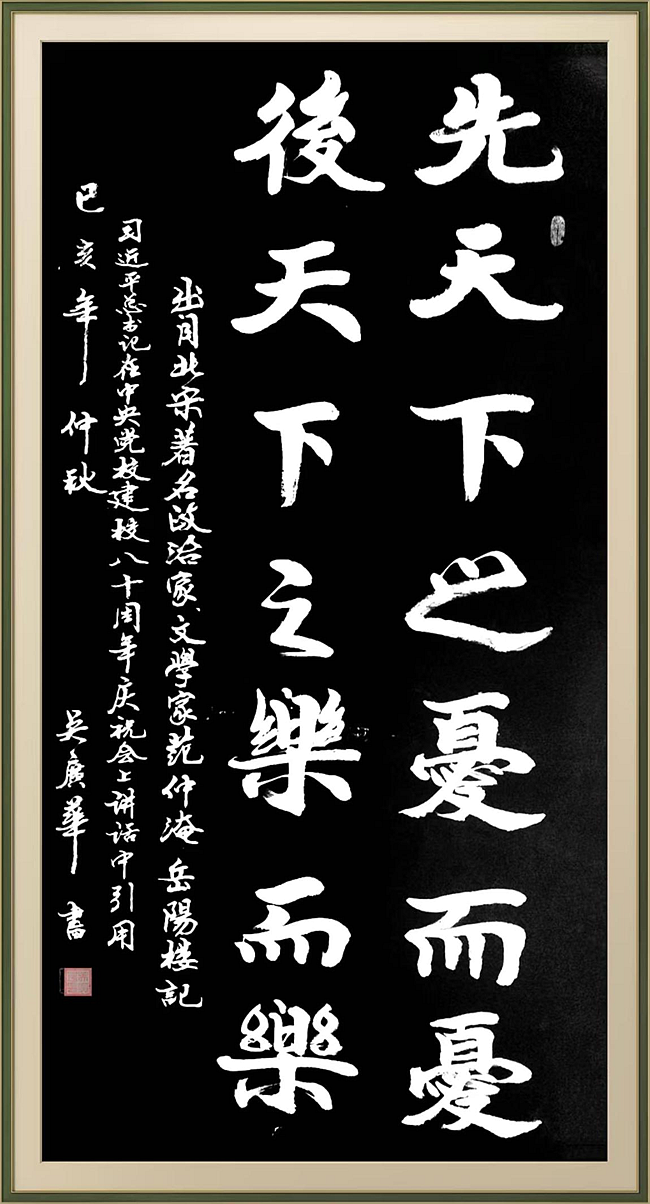 先天下之憂而憂
後天下之樂而樂
出自北宋著名政治家、文學家范仲淹岳陽樓記
习近平总书记在中央党校建校八十周年庆祝会上讲话中引用
已亥年仲秋
吴廣華書